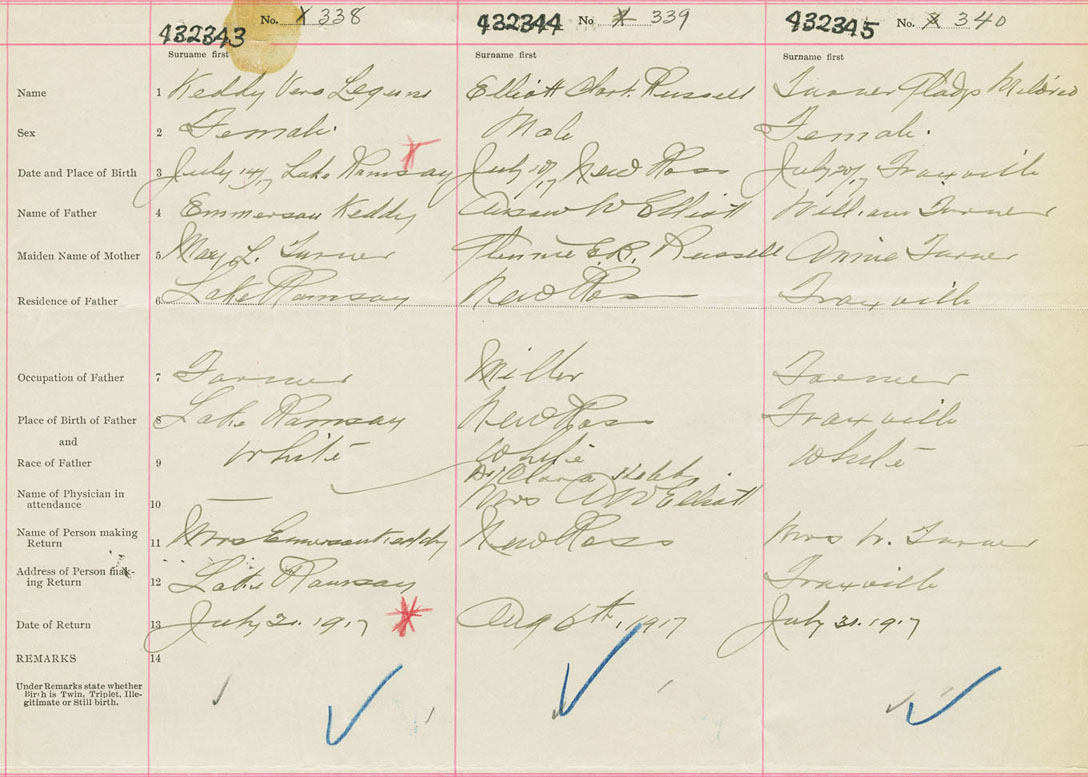 432343 No. X 338 432344 No X 339 432345 No. X 340
Surname first Surname first Surname first
Name 1 Keddy Vera Elliott Clark Russell Turner Gladys Mildred
Sex 2 Female. Male Female.
Date and Place of Birth 3 July 14/17 Lake Ramsay July New Ross July Traxville
Name of Father 4 Emmerson Keddy W Elliott William Turner
Maiden Name of Mother 5 May L. Turner E.R. Russell Annie Turner
Residence of Father 6 Lake Ramsay New Ross Traxville
Occupation of Father 7 Farmer Miller Farmer
Place of Birth of Father 8 Lake Ramsay New Ross Traxville
and
Race of Father 9 White White White
Name of Physician in Dr Clara
attendance 10 — Mrs A W Elliott
Name of Person making
Return 11 Mrs Emerson Keddy New Ross Mrs W. Turner
Address of Person mak-
ing Return 12 Lake Ramsay Traxville
Date of Return 13 July 31. 1917 Aug 6th, 1917 July 31. 1917
REMARKS 14
Under Remarks state whether
Birth is Twin, Triplet, Ille-
gitimate or Still birth.